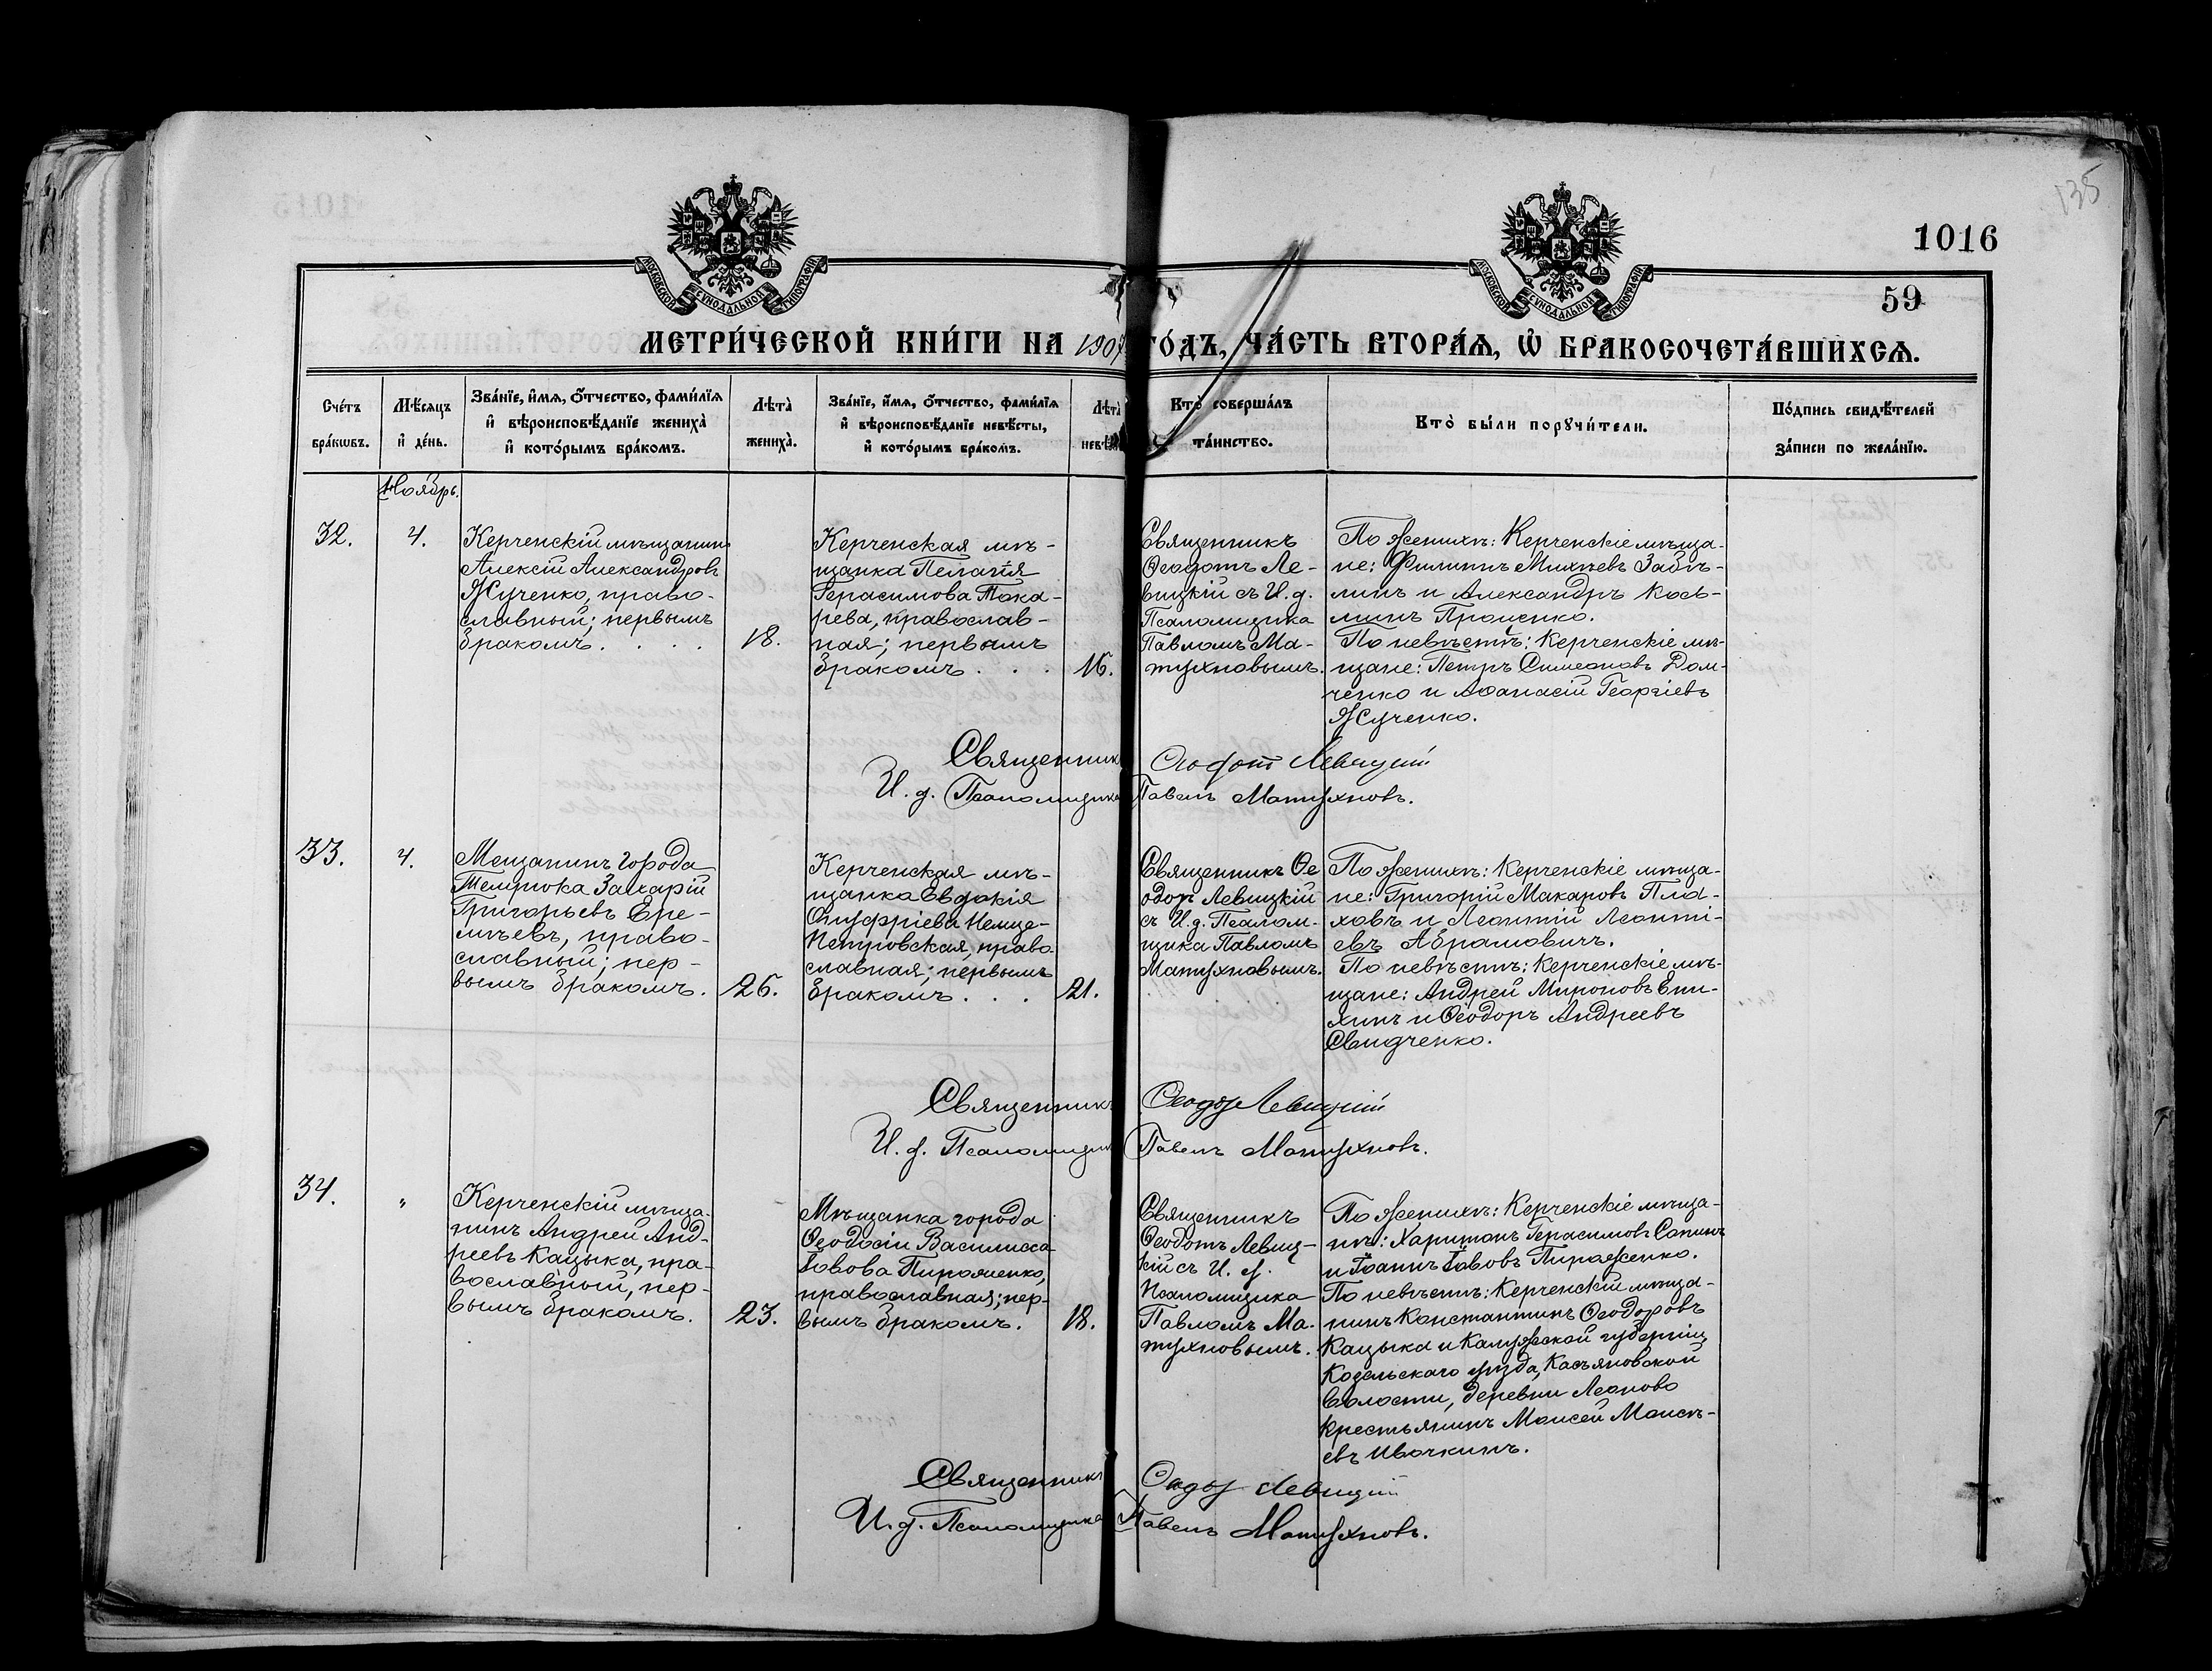 135
1016
59
МОСКОВСКОЙ СѴНОДАЛЬНОЙ ТИПОГРАФІИ
МОСКОВСКОЙ СѴНОДАЛЬНОЙ ТИПОГРАФІИ
МЕТРИ́ЧЕСКОЙ КНИ́ГИ НА 1907 ГО́ДЪ, ЧА́СТЬ ВТОРА́Ѧ, Ѡ҆ БРАКОСОЧЕТА́ВШИХСѦ.
Сче́тъ
бра́кѡвъ.
Мѣ́сѧцъ
и҆ де́нь.
Зва́нїе, и҆́мѧ, ѻ҆́тчество, фами́лїѧ
и҆ вѣроисповѣ́данїе жениха̀
и҆ кото́рымъ бра́комъ.
Лѣта̀
жениха̀.
Зва́нїе, и҆́мѧ, ѻ҆́тчество, фами́лїѧ
и҆ вѣроисповѣ́данїе невѣ́сты,
и҆ кото́рымъ бра́комъ.
Лѣта̀
невѣ́
Кто̀ соверша́лъ
та́инство.
Кто̀ бы́ли порꙋчи́тели.
По́дпись свидѣ́телей
за́писи по жела́нїю.
Ноябрь.
32.
4.
Керченскій мѣщанинъ
Алексій Александровъ
Жученко, право-
славный; первымъ
бракомъ. . . . .
18.
Керченская мѣ-
щанка Пелагія
Герасимова Тока-
рева, православ-
ная; первымъ
бракомъ . . .
16.
Священникъ
Ѳеодотъ Ле-
вицкій съ И. д.
Псаломщика
Павломъ Ма-
тухновымъ.
По женихѣ: Керченскіе мѣща-
не: Филиппъ Михѣевъ Забѣ-
линъ и Александръ Кось-
минъ Проценко.
По невѣстѣ: Керченскіе мѣ-
щане: Петръ Симеоновъ Дом-
ченко и Аѳанасій Георгіевъ
Жученко.
Священникъ Ѳеодотъ Левицкій
И. д. Псаломщика Павелъ Матухновъ.
33.
4.
Мещанинъ города
Темрюка Захарій
Григорьевъ Ере-
мѣевъ, право-
славный; пер-
вымъ бракомъ.
26.
Керченская мѣ-
щанка Евдокія
Онуфріева Немце-
Петровская, право-
славная; первымъ
бракомъ . . .
21.
Священникъ Ѳе
одоръ Левицкій
съ И. д. Псалом-
щика Павломъ
Матухновымъ.
По женихѣ: Керченскіе мѣща-
не: Григорій Макаровъ Пла-
ховъ и Леонтій Леонті-
евъ Абрамовичъ.
По невѣстѣ: Керченскіе мѣ-
щане: Андрей Мироновъ Епи-
хинъ и Ѳеодоръ Андреевъ
Свидченко.
Священникъ Ѳеодоръ Левицкій
И. д. Псаломщика Павелъ Матухновъ.
34.
"
Керченскій мѣща-
нинъ Андрей Анд-
реевъ Кацыка, пра-
вославный, пер-
вымъ бракомъ.
23.
Мѣщанка города
Ѳеодосіи Василисса
Іовова Пироженко,
православная; пер-
вымъ бракомъ.
18.
Священникъ
Ѳеодотъ Левиц-
кій съ И. д.
Псаломщика
Павломъ Ма-
тухновымъ.
По женихѣ: Керченскіе мѣща-
нѣ: Харитонъ Герасимовъ Сапинъ
и Іоаннъ Іововъ Пироженко.
По невѣстѣ: Керченскій мѣща-
нинъ Константинъ Ѳеодоровъ
Кацыка и Калужской губерніи,
Козельскаго уѣзда, Касьяновской
волости, деревни Леоново
крестьянинъ Моисей Моисѣ-
евъ Ивочкинъ.
Священникъ Ѳеодоръ Левицкій
И. д. Псаломщика Павелъ Матухновъ.